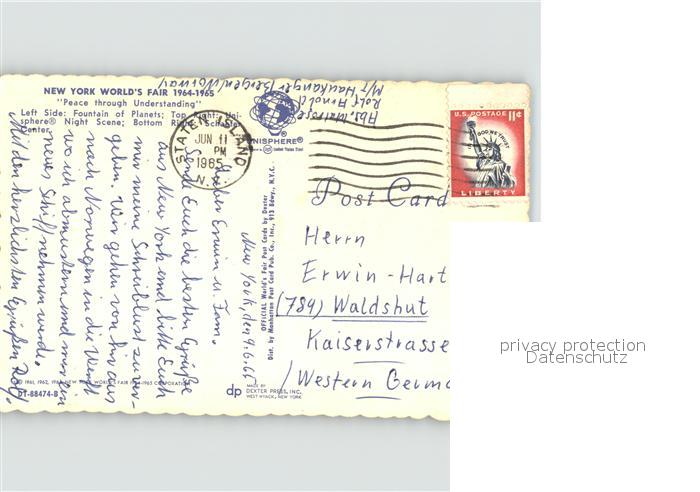 NEW YORK WORLD'S FAIR 1964-1965
"Peace through Understanding"
Left Side: Fountain of Planets; Top Right: Uni-
sphere® Night Scene; Bottom Right: Schaefer
Center.
Rolf Arnold
M/T Haukanger (Bergen/Norway)
STATEN ISLAND
JUN 11
PM
1965
N.Y.
UNISPHERE®
U.S. POSTAGE 11¢
IN GOD WE TRUST
LIBERTY
Post Card
New York, den 9.6.65
Lieber Erwin u. Fam.
Sende Euch die besten Grüße
aus New York und bitte Euch
mir meine Schreiblust zu ver-
geben. Wir gehen von hier aus
nach Norwegen in die Werft
wo ich abmustern und mir ein
neues Schiff nehmen werde.
Mit den herzlichsten Grüßen Rolf
Herrn
Erwin Hart
(789) Waldshut
Kaiserstrasse
/Western Germa
OFFICIAL World's Fair Post Cards by Dexter
Dist. by Manhattan Post Card Pub. Co., Inc., 913 Bdwy., N.Y.C.
© 1961, 1962, NEW YORK WORLD'S FAIR 1964-1965 CORPORATION
DT-88474-B
dp
MADE BY
DEXTER PRESS, INC.
WEST NYACK, NEW YORK
privacy protection
Datenschutz